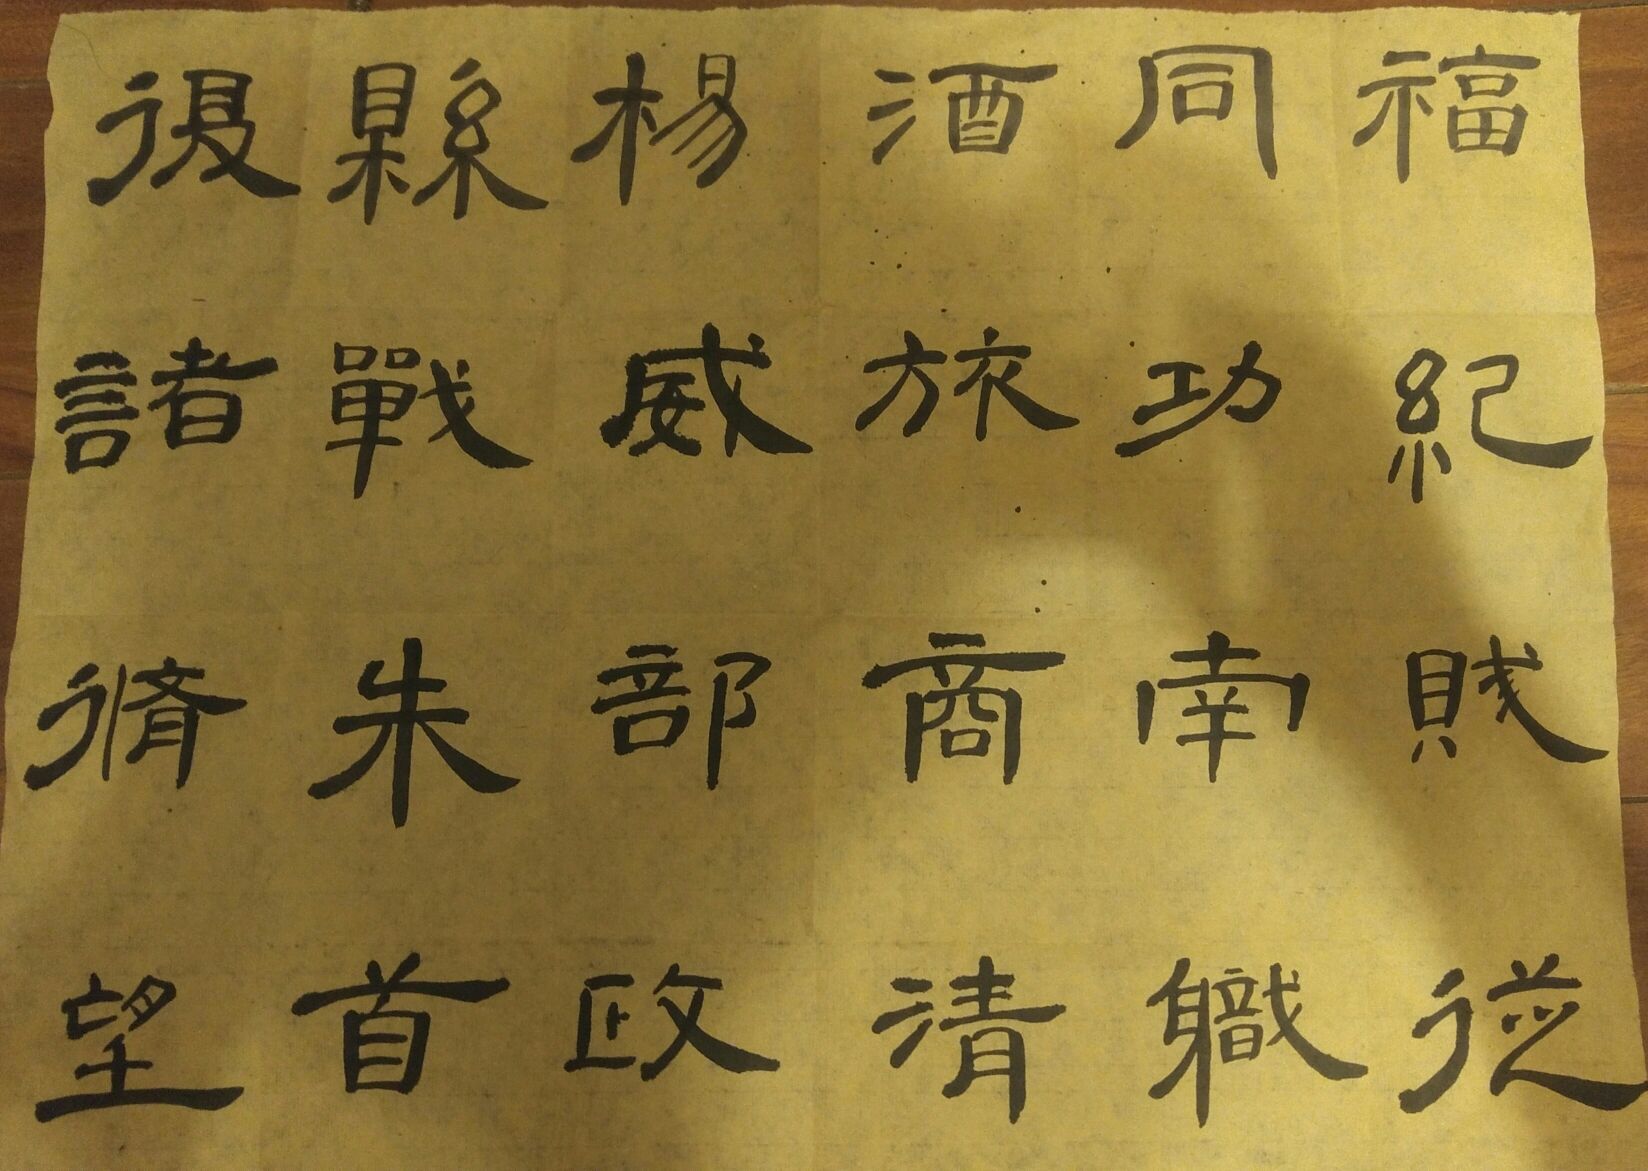 福紀賊從
同功南職
酒旅商清
楊威部政
縣戰朱首
復諸脩望